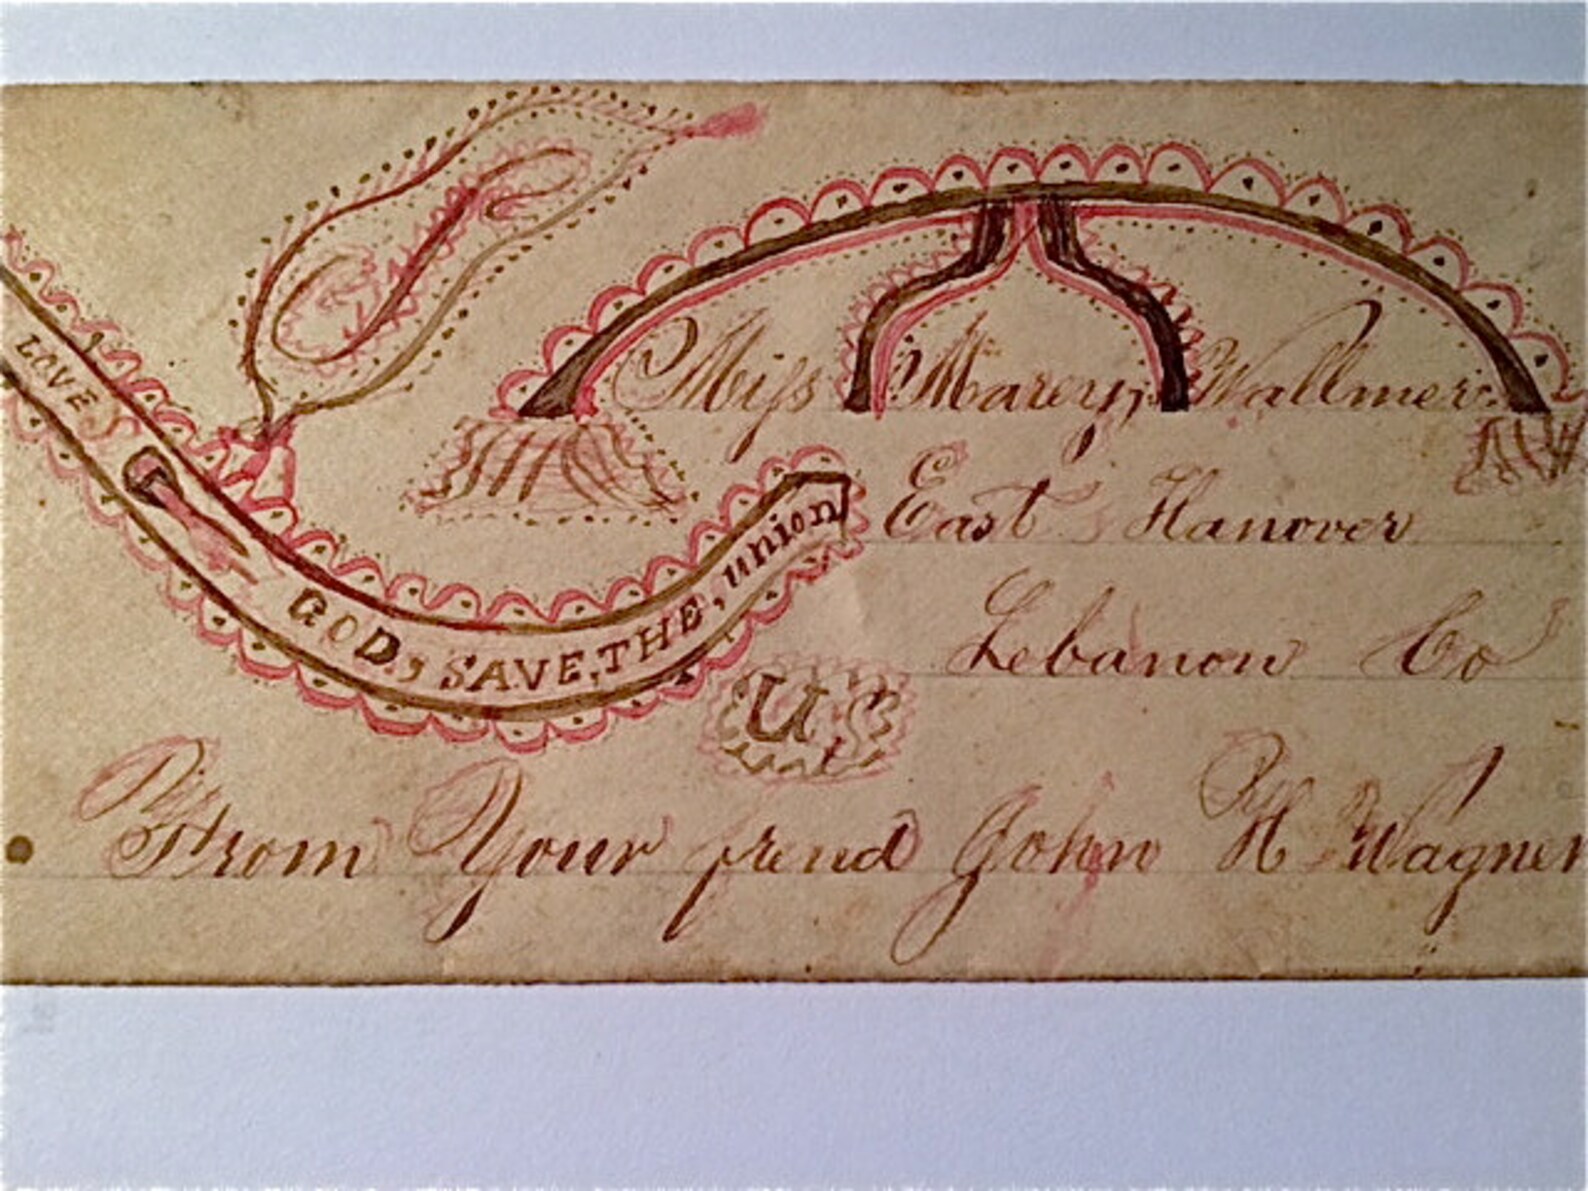 LOVE
GOD, SAVE, THE, union
Miss Marey, Wallmer
East Hanover
Lebanon Co
U S
From Your frend John H Wagner